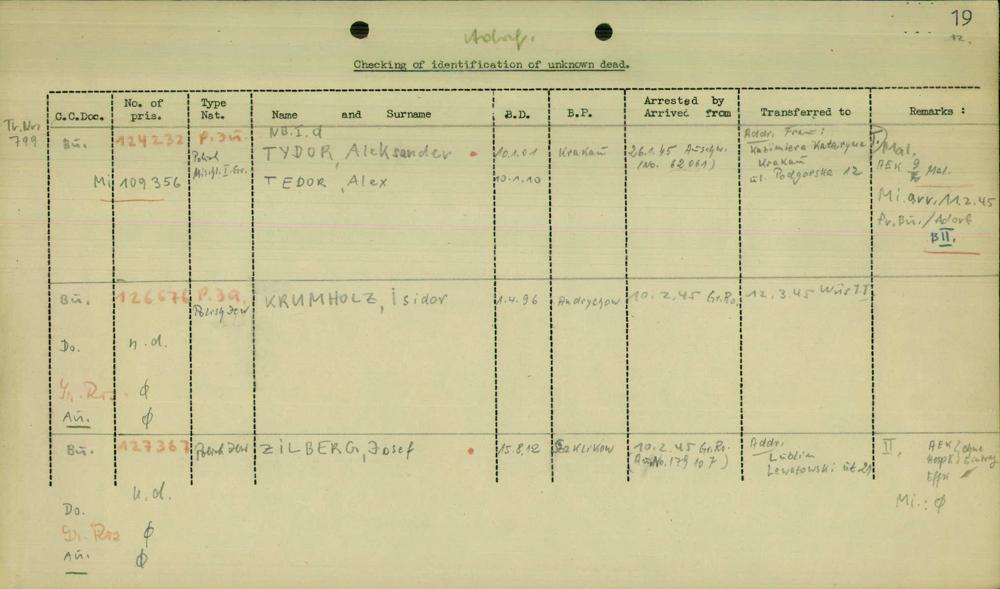 19
Adorf.
12.
Checking of identification of unknown dead.
C.C.Doc. No. of pris. Type Nat. Name and Surname B.D. B.P. Arrested by Arrived from Transferred to Remarks :
Tr.Nr. 799
Bu. 124232 P. Jü. NB. I. d
TYDOR, Aleksander 10.1.01 Krakau 26.1.45 Auschw. (No. 62061)
Polish Mischl. I. Gr.
Addr. Frau :
Kazimiera Kataryna
Krakau
ul. Podgorska 12
Mal.
AEK Mal.
Mi 109356 TEDOR, Alex 10.1.10
Mi. arr. 11.2.45
fr. Bu. / Adorf
BII.
Bu. 126676 P. Ju. KRUMHOLZ, isidor 1.4.96 Andrychow 10.2.45 Gr.Ro. 12.3.45
Polish Jew
Do. n.d.
Gr. Ros. ϕ
Au. ϕ
Bu. 127367 Polish Jew ZILBERG, Josef 15.8.12 Zaklikow 10.2.45 Gr.Ro.
(No. 179107)
Addr.
Lublin
Lewatowski 21
II. AEK ohne
Hospk Eintrag
Effk
Mi. : ϕ
Do. n.d.
Gr. Ros ϕ
Au. ϕ